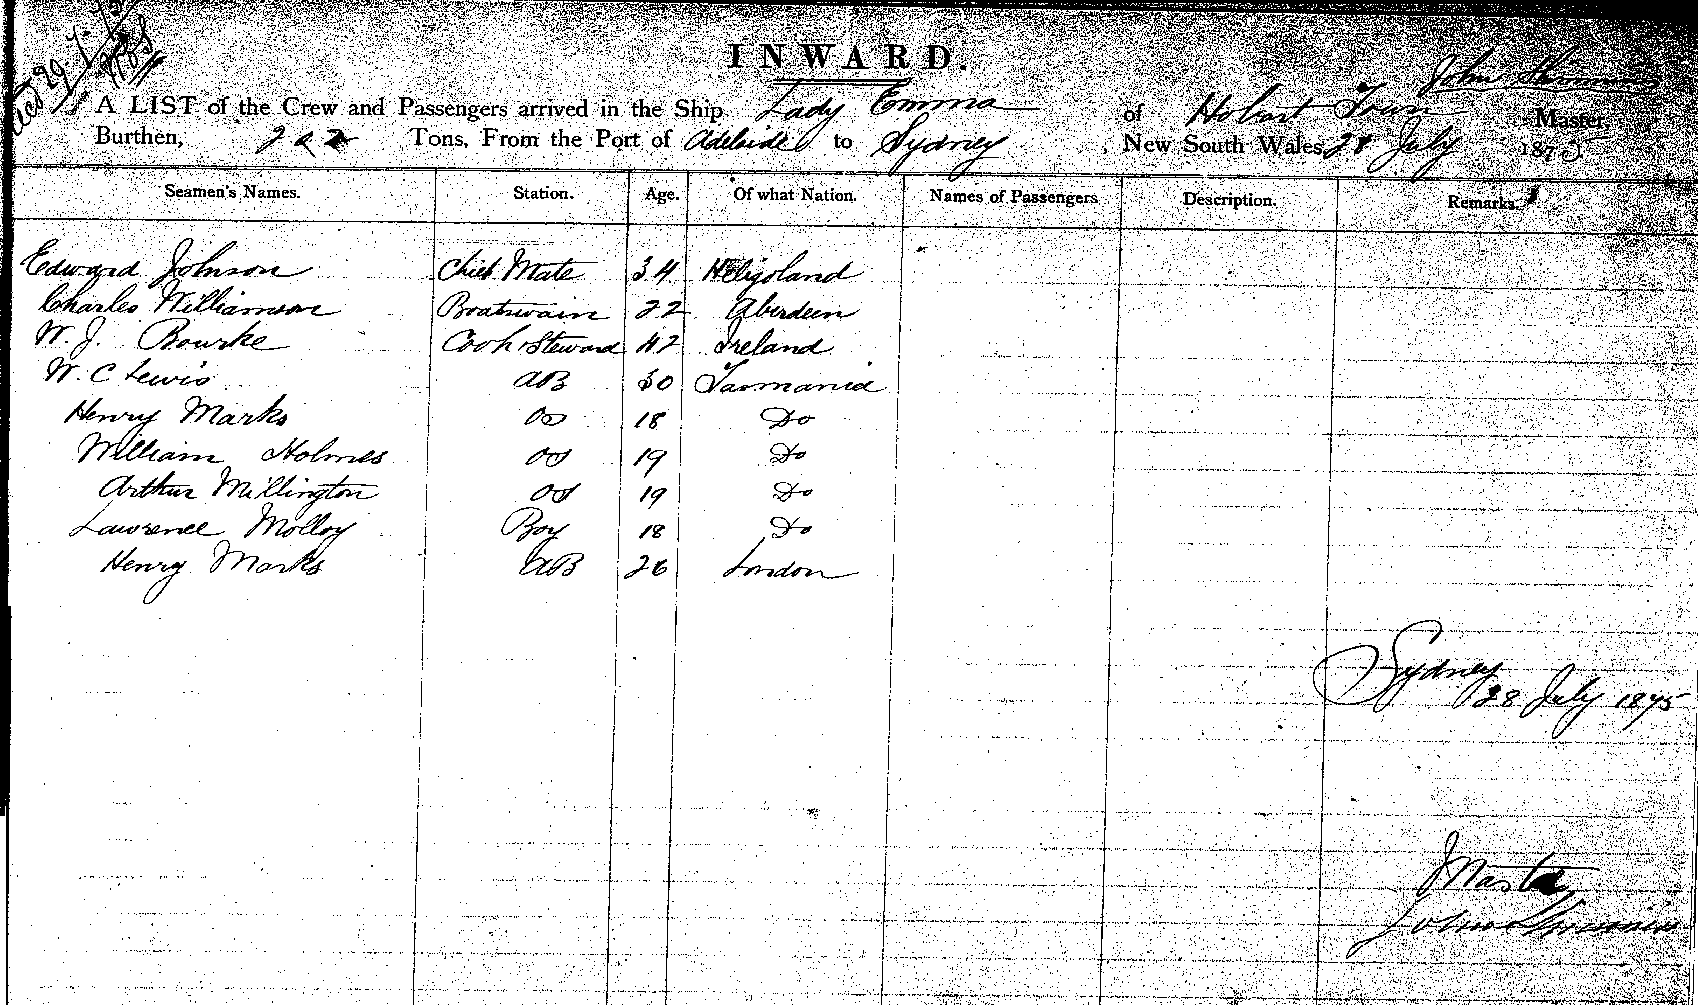 INWARD.
John
A LIST of the Crew and Passengers arrived in the Ship Lady Emma of Hobart Town Master,
Burthen, Tons, From the Port of Adelaide to Sydney, New South Wales, 28 July 1875
Seamen's Names. Station. Age. Of what Nation. Names of Passengers Description. Remarks.
Edward Johnson Chief Mate 34 Heligoland
Charles Williamson Boatswain 22 Aberdeen
W. J. Bourke Cook & Steward 42 Ireland
W. C Lewis AB 30 Tasmania
Henry Marks OS 18 Do
William Holmes OS 19 Do
Arthur Millington OS 19 Do
Lawrence Molloy Boy 18 Do
Henry Marks AB 26 London
Sydney
28 July 1875
Master
John